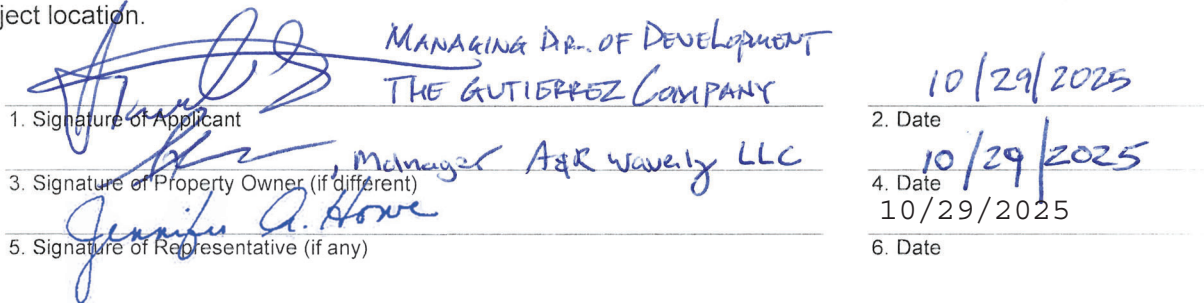 ject location.
MANAGING DIR. OF DEVELOPMENT
THE GUTIERREZ COMPANY
10/29/2025
1. Signature of Applicant
2. Date
, Manager A&R Waverly LLC
10/29/2025
3. Signature of Property Owner (if different)
4. Date
Jennifer A. Howe
10/29/2025
5. Signature of Representative (if any)
6. Date